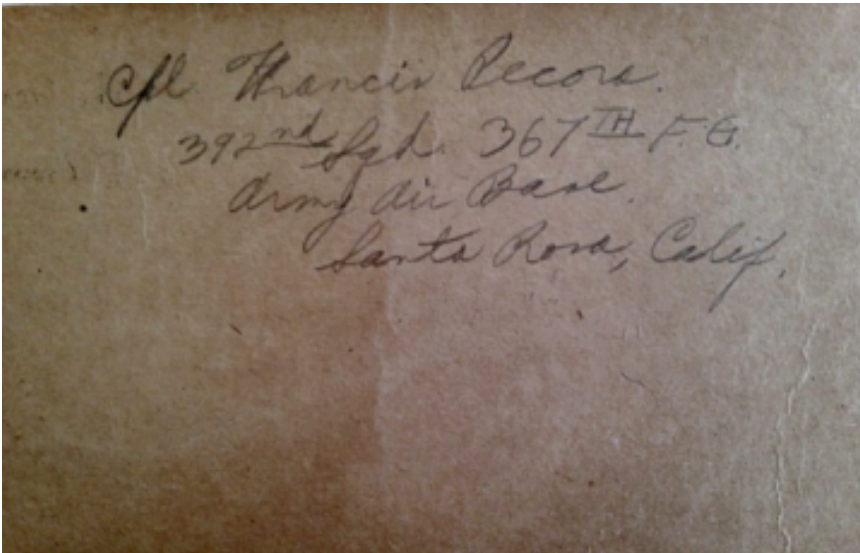 Cpl. Francis Pecora.
392nd Sqd. 367TH F.G.
Army Air Base.
Santa Rosa, Calif.